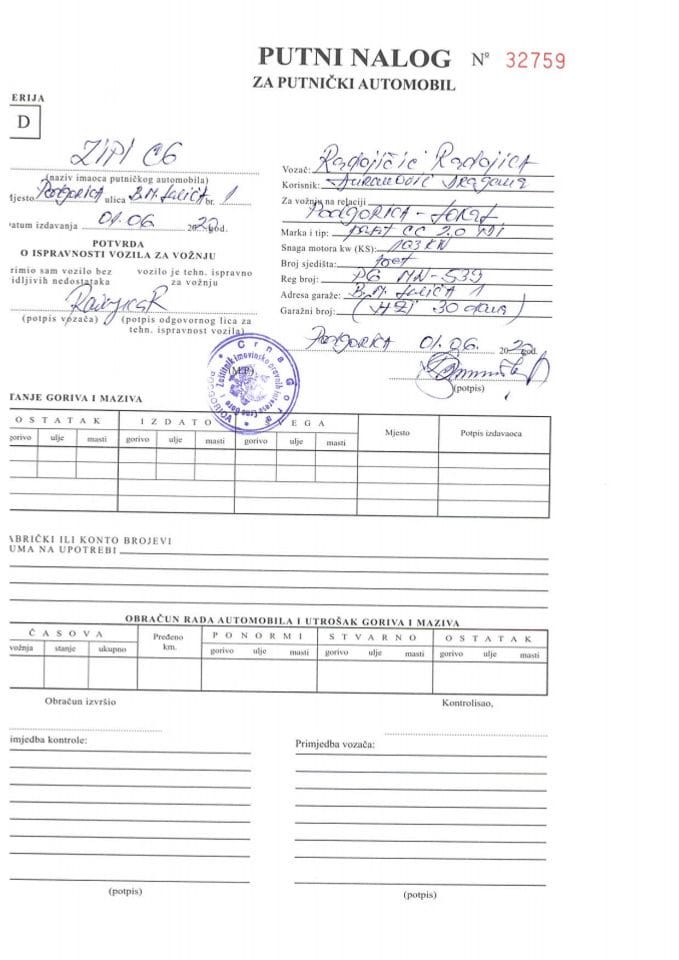 PUTNI NALOG Nº 32759
ZA PUTNIČKI AUTOMOBIL
ERIJA
D
ZIPI CG
(naziv imaoca putničkog automobila)
Mjesto Podgorica ulica B.M. br. 1
atum izdavanja 01.06. 2020 god.
POTVRDA
O ISPRAVNOSTI VOZILA ZA VOŽNJU
rimio sam vozilo bez vozilo je tehn. ispravno
idljivih nedostataka za vožnju
(potpis vozača) (potpis odgovornog lica za
tehn. ispravnost vozila)
Vozač: Radojičić Radojica
Korisnik: Đuranović Dragana
Za vožnju na relaciji
PODGORICA -
Marka i tip: CC 2.0 TDI
Snaga motora kw (KS): 103 KW
Broj sjedišta:
Reg broj: PG MN-539
Adresa garaže: B.M. 1
Garažni broj: ( 30 dana)
Podgorica 01.06. 2020 god.
(potpis)
(M.P.)
Crna Gora
Zaštitnik imovinsko pravnih interesa Crne Gore
PODGORICA
TANJE GORIVA I MAZIVA
OSTATAK IZDATO SVEGA Mjesto Potpis izdavaoca
gorivo ulje masti gorivo ulje masti gorivo ulje masti
ABRIČKI ILI KONTO BROJEVI
UMA NA UPOTREBI
OBRAČUN RADA AUTOMOBILA I UTROŠAK GORIVA I MAZIVA
ČASOVA Pređeno km. PO NORMI STVARNO OSTATAK
vožnja stanje ukupno gorivo ulje masti gorivo ulje masti gorivo ulje masti
Obračun izvršio Kontrolisao,
imjedba kontrole: Primjedba vozača:
(potpis) (potpis)